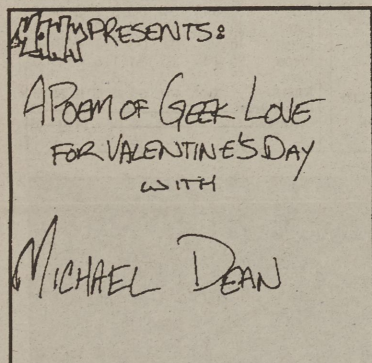 PRESENTS:
A POEM OF GEEK LOVE
FOR VALENTINE'S DAY
WITH
MICHAEL DEAN